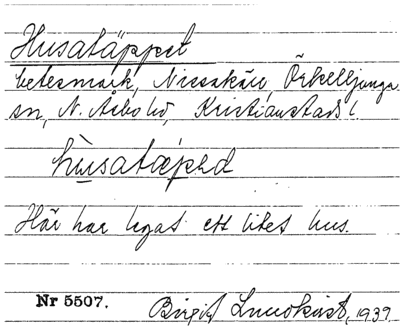 Husatäppet
betesmark, Nissakäu, Örkelljunga
sn, N. Åsbo hd, Kristianstads l.
husatæped
Här har legat ett litet hus.
Nr 5507.
Birgit Lundkvist, 1939